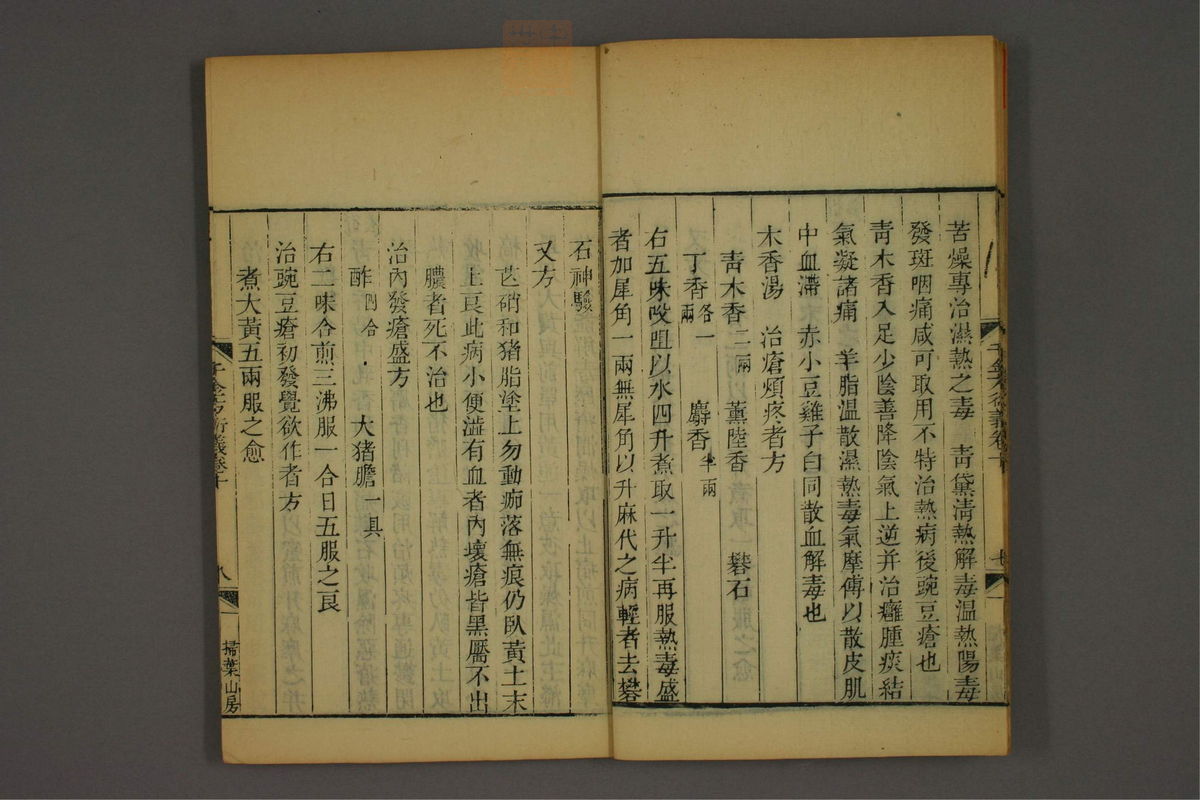 苦燥專治濕熱之毒　靑黛淸熱解毒溫熱陽毒
發斑咽痛咸可取用不特治熱病後豌豆瘡也
靑木香入足少陰善降陰氣上逆并治癰腫痰結
氣凝諸痛　羊脂溫散濕熱毒氣摩傅以散皮肌
中血滯　赤小豆雞子白同散血解毒也
木香湯　治瘡煩疼者方
靑木香二兩　薰陸香　礬石
丁香各一兩　麝香半兩
右五味㕮咀以水四升煮取一升半再服熱毒盛
者加犀角一兩無犀角以升麻代之病輕者去礬
石神驗
又方
芒硝和猪脂塗上勿動痂落無痕仍臥黃土末
上良此病小便澁有血者內壞瘡皆黑靨不出
膿者死不治也
治內發瘡盛方
酢四合　大猪膽一具
右二味合煎三沸服一合日五服之良
治豌豆瘡初發覺欲作者方
煮大黃五兩服之愈
千金方衍義卷十
八
掃葉山房